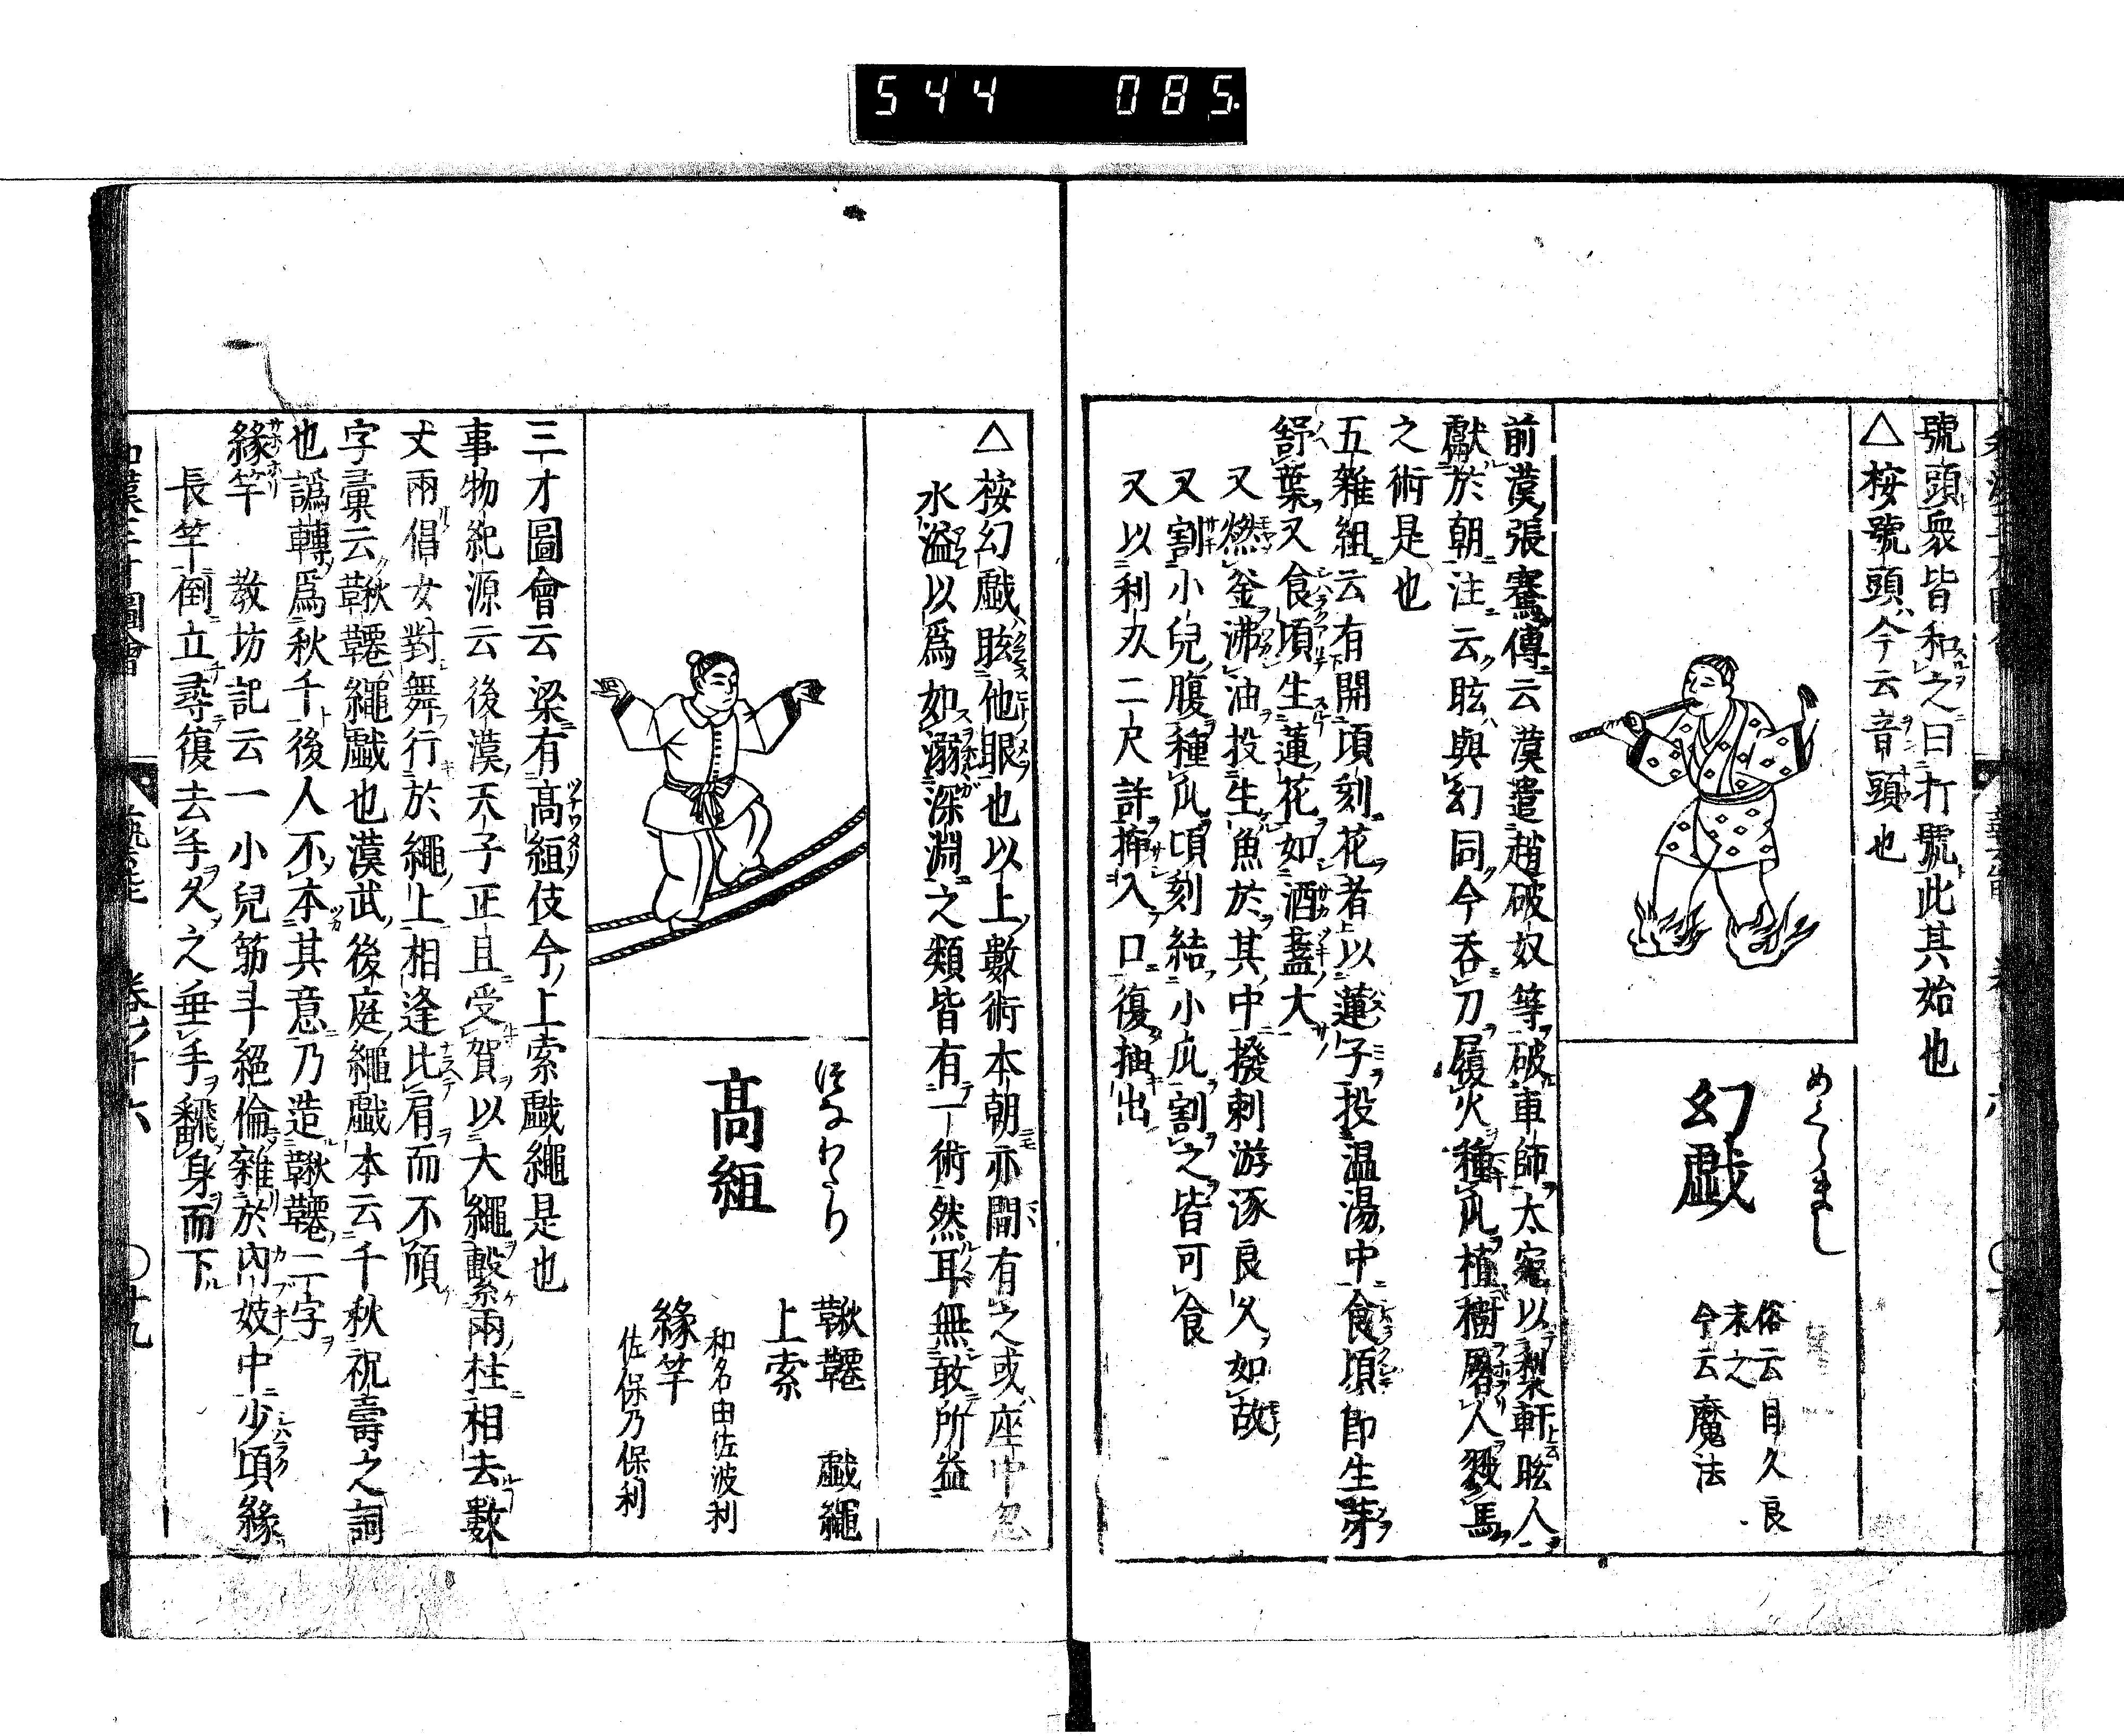 544 085.
號頭衆皆和之曰打號此其始也
△按號頭今云音頭也
めくらまし
幻戯
俗云目久良
末之
今云魔法
前漢張騫傳云漢遣趙破奴等破車師太宛以犂軒眩人
獻於朝注云眩與幻同今吞刀履火種瓜植樹屠人殺馬
之術是也
五雜組云有開頃刻花者以蓮子投温湯中食頃即生芽
舒葉又食頃生蓮花如酒盞大
又燃釜沸油投生魚於其中撥剌游泳良久如故
又割小兒腹種瓜頃刻結小瓜割之皆可食
又以利刃二尺許揷入口復抽出
△按幻戯眩他眼也以上數術本朝亦聞有之或座中忽
水溢以爲如溺深淵之類皆有一術然耳無敢所益
つなわたり
高絙
鞦韆 戯繩
上索
和名由佐波利
緣竿
佐保乃保利
三才圖會云梁有高絙伎今上索戯繩是也
事物紀源云後漢天子正旦受賀以大繩繫兩柱相去數
丈兩倡女對舞行於繩上相逢比肩而不傾
字彙云鞦韆繩戯也漢武後庭繩戯本云千秋祝壽之詞
也譌轉爲秋千後人不本其意乃造鞦韆二字
緣竿 教坊記云一小兒筋斗絕倫雜於內妓中少頃緣
長竿倒立尋復去手久之垂手飜身而下
和漢三才圖會 藝能 卷之十六 〇十九